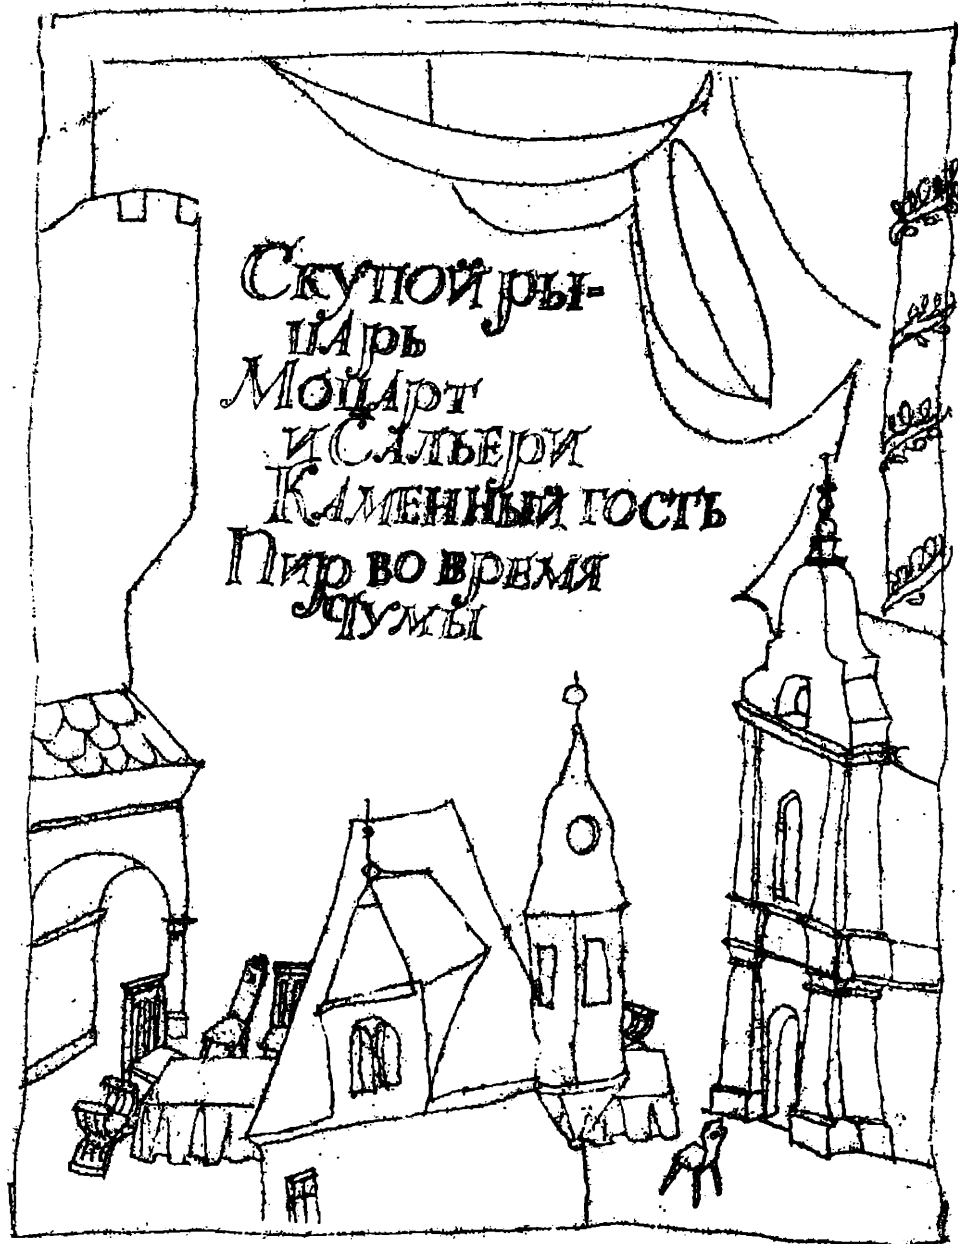 Скупой ры-
царь
Моцарт
и Сальери
Каменный гость
Пир во время
чумы